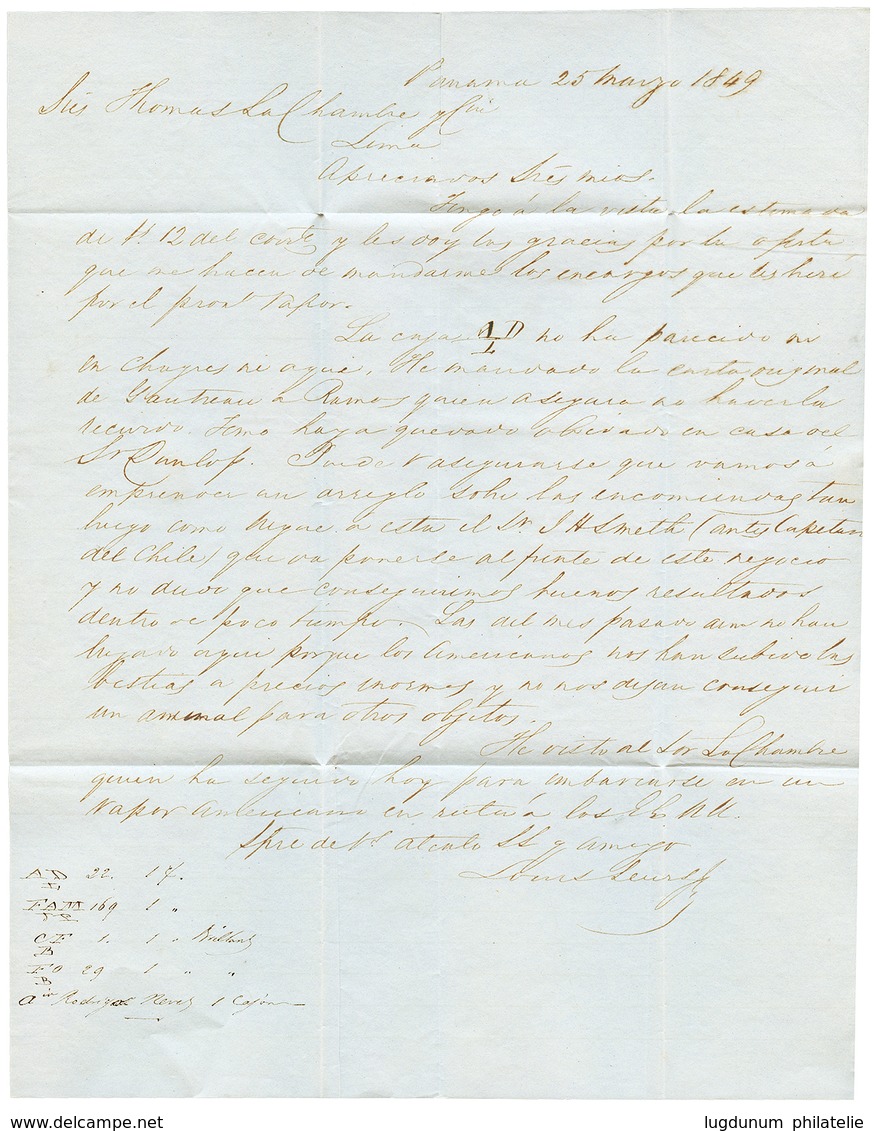 Panama 25 Marzo 1849
Sres Thomas La Chambre y Cia
Lima
Apreciados Sres mios.
Tengo á la vista la estimada
de Vs 12 del corrte y les doy las gracias por la oferta
que me hacen de mandarme los encargos que les hice
por el proxo vapor.
La caja AD no ha parecido ni
L
en Chagres ni aqui. He mandado la carta original
de Gautreau a Ramos quien asegura no haverla
recivido. Temo haya quedado olvidado en casa del
Sr Dunlop. Puede V asegurarse que vamos á
emprender un arreglo sobe las encomiendas tan
luego como llegue a esta el Sr. J H Smeth (antes Capitan
del Chile) que va ponerse al frente de este negocio
y no dudo que conseguiremos buenos resultados
dentro de poco tiempo. Las del mes pasado aun no han
llegado aqui porque los Americanos nos han subido las
bestias a precios inormes y no nos dejan conseguir
un animal para otros objetos.
He visto al Sor La Chambre
quien ha seguido hoy para embarcarse en un
vapor Americano en ruta á los EE UU.
Spre de Vs atento SS y amigo
Louis Leurs
AD 22. 1
L
FAM 169 1 "
CF 1. 1 " Brillant
B
FO 29 1 " "
B
Rodrigez Nerey 1 Cajon
www.delcampe.net
lugdunum philatelie